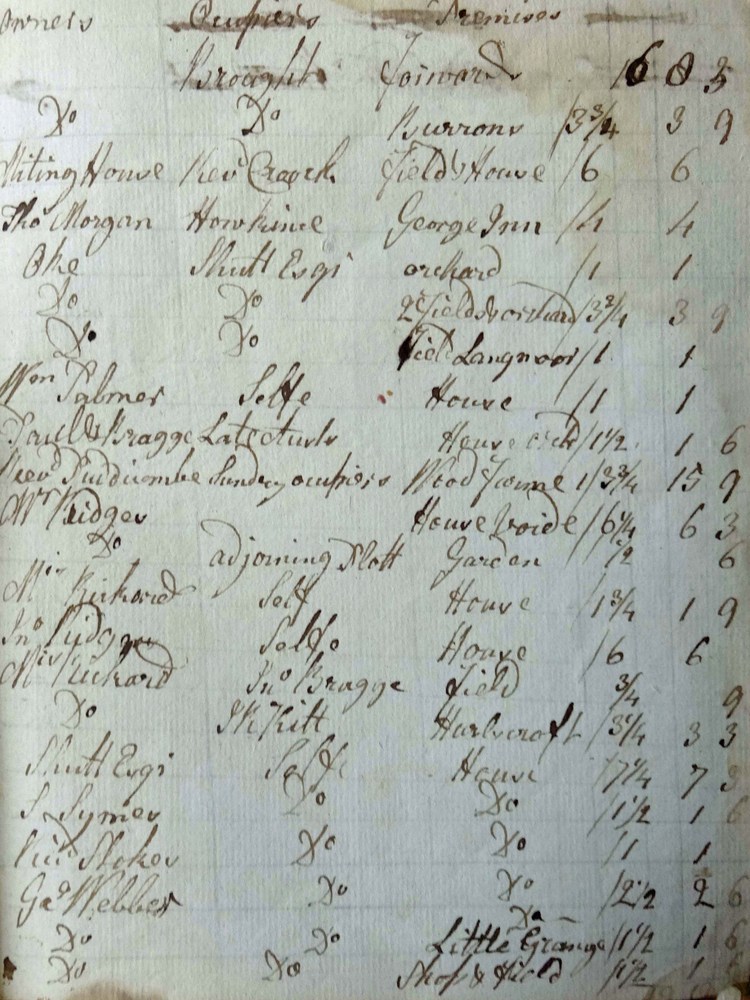 Owners Ocupiers Premises
Brought Forward 16 8 3
Do Do Burrons /3¾ 3 9
Miting House Revd Field & House /6 6
Tho Morgan Howkine George Inn /4 4
Oke Shutt Esqr orchard /1 1
Do Do 2 Fields & orchard /3¾ 3 9
Do Do Field Langmoor /1 1
Wm Palmer Selfe House /1 1
Bragge Late House /1½ 1 6
Revd Puddicombe Sundery ocupiers Wood Farme 15 9
Mr Pidger House Voide /6¼ 6 3
Do adjoining Plott Garden ½ 6
Rickard Self House /1¾ 1 9
Jno Pidger Selfe House /6 6
Rickard Jno Bragge Field ¾ 9
Do Hurlscroft /3¼ 3 3
Shutt Esqr Selfe House /7¼ 7 3
S Symes Do Do /1½ 1 6
Stoker Do Do /1 1
Geo Webber Do Do /2½ 2 6
Do Do Do Little Grange /1½ 1 6
Do Do Shop & Field /1½ 1 6